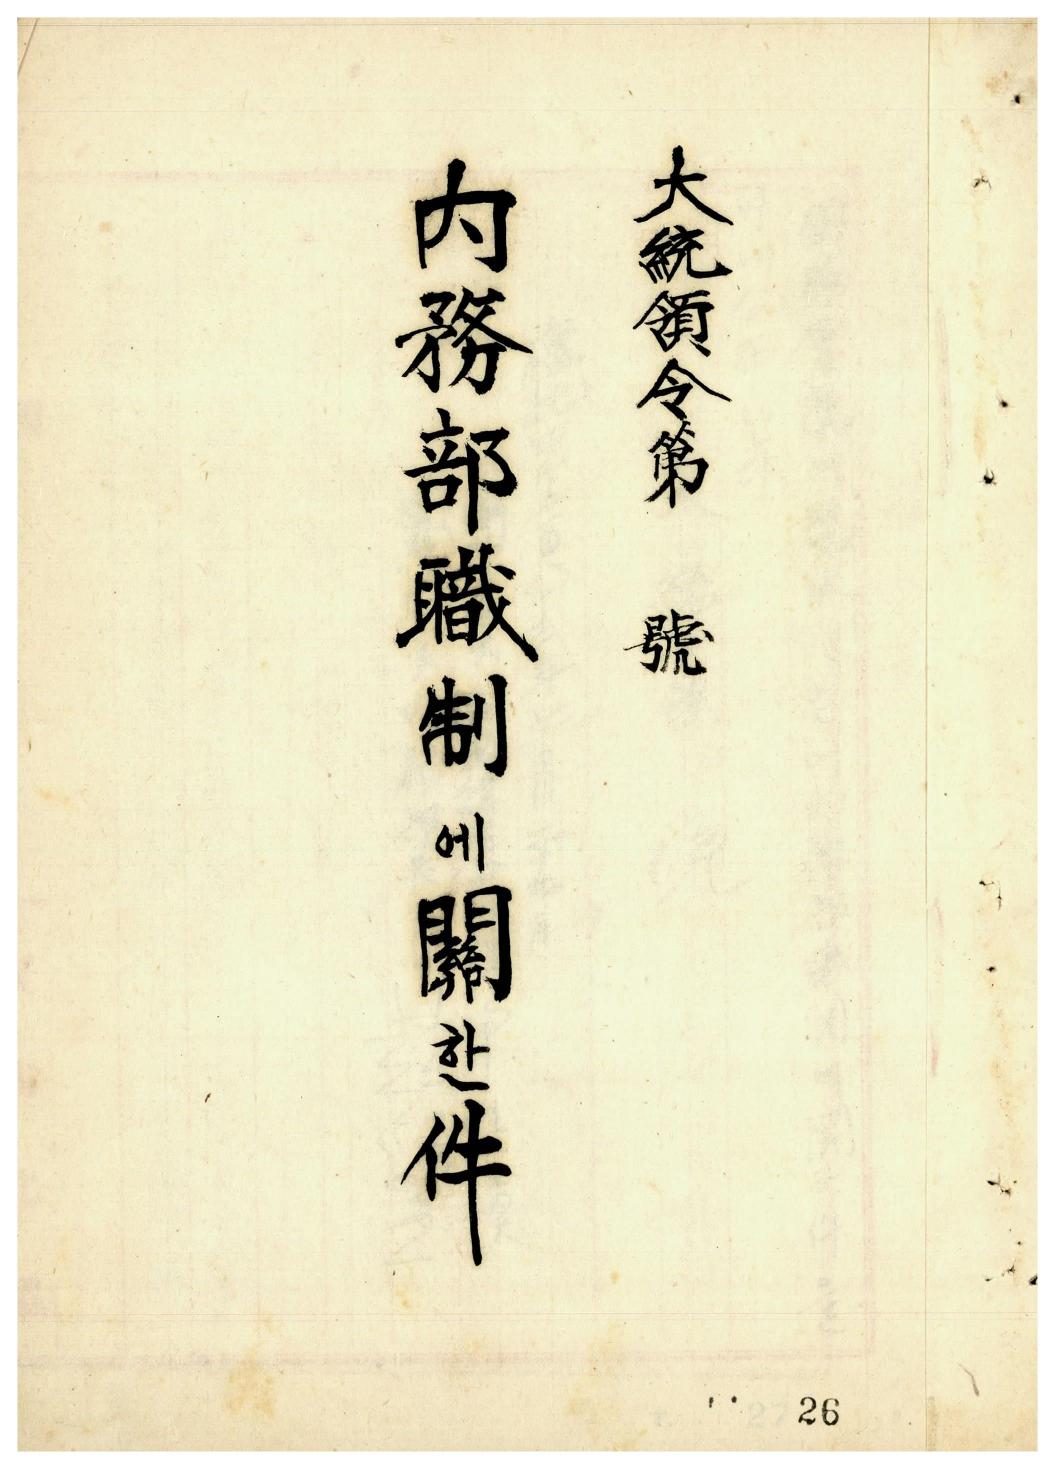 大統領令第 號
內務部職制에關한件
26